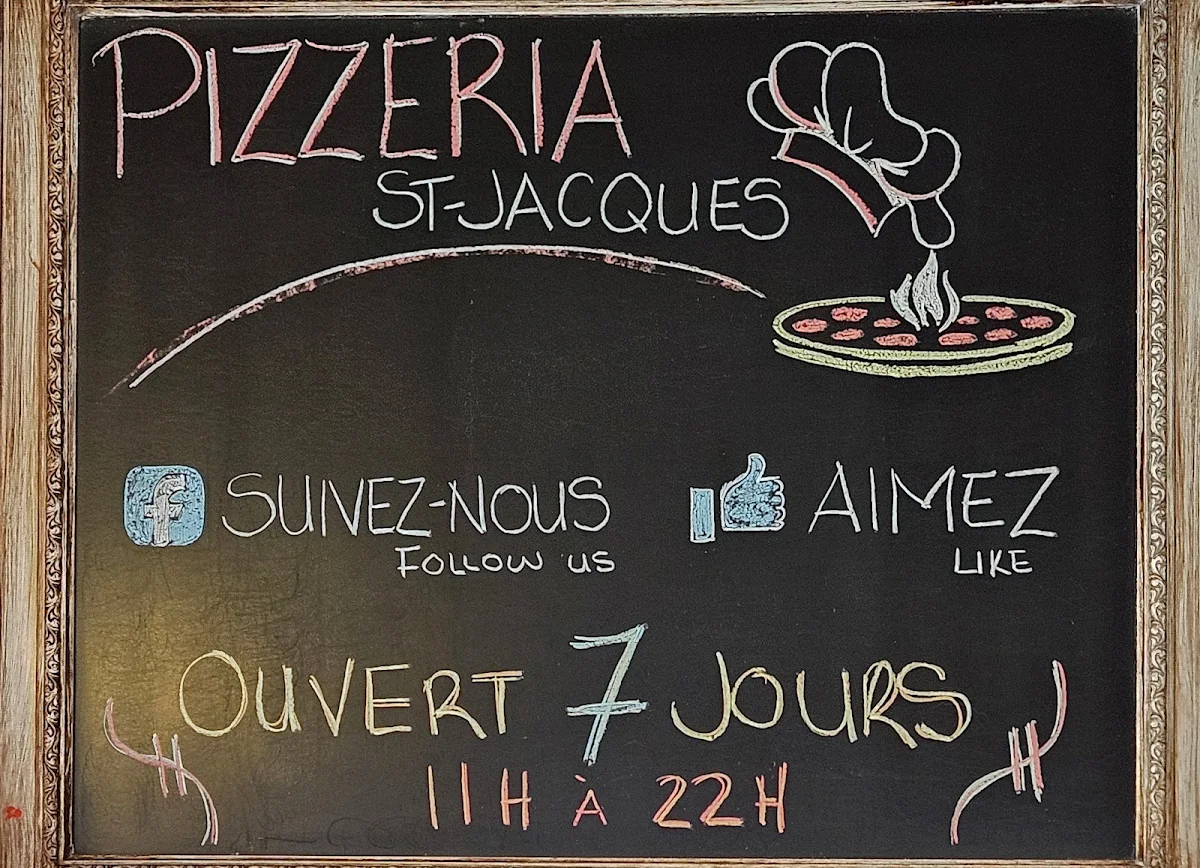 PIZZERIA
ST-JACQUES
f SUIVEZ-NOUS
FOLLOW US
AIMEZ
LIKE
OUVERT 7 JOURS
11H À 22H